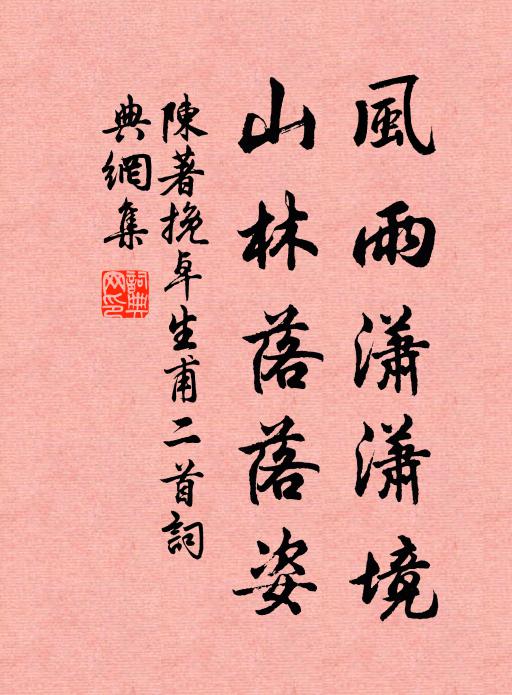 風雨瀟瀟境
山林落落姿
陳著挽卓生甫二首詞
典網集
詞典
网印